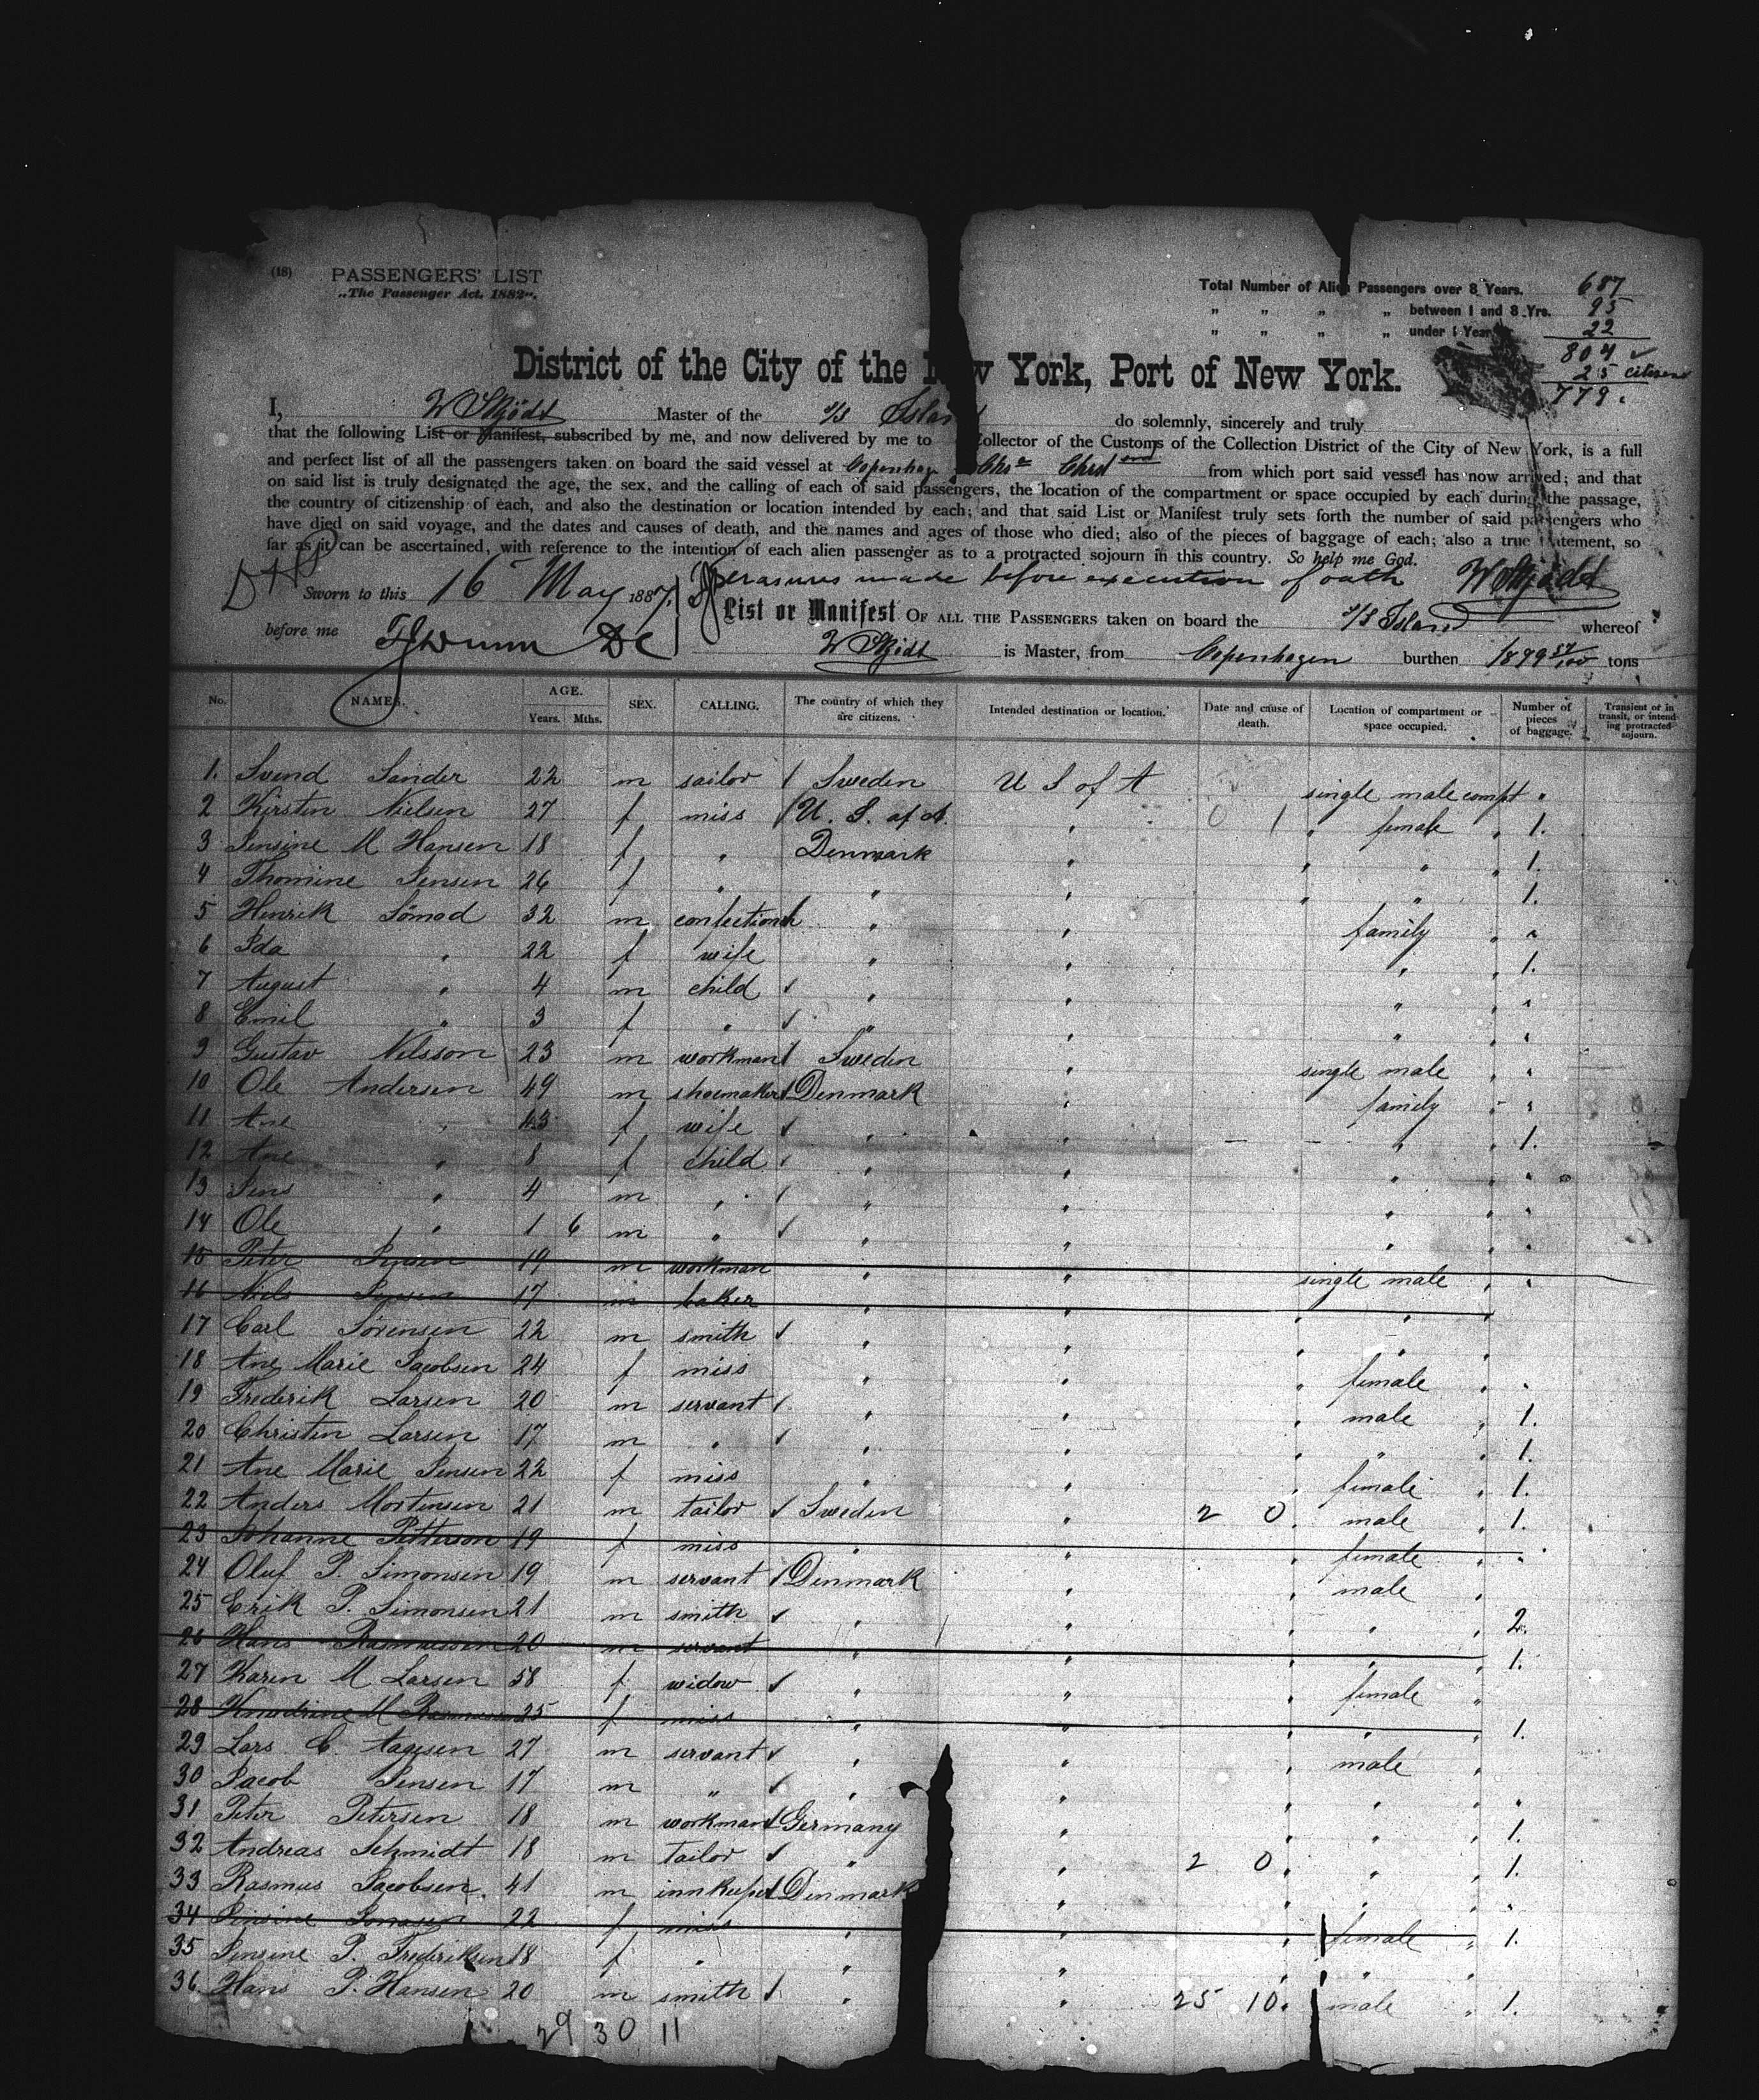 (18) PASSENGERS' LIST
„The Passenger Act. 1882".
Total Number of Alien Passengers over 8 Years. 687
„ „ „ „ between 1 and 8 Yrs. 95
„ „ „ „ under 1 Year 22
804
25 citizens
779.
District of the City of the New York, Port of New York.
I, W Skjödt Master of the S/S Island do solemnly, sincerely and truly
that the following List or Manifest, subscribed by me, and now delivered by me to Collector of the Customs of the Collection District of the City of New York, is a full
and perfect list of all the passengers taken on board the said vessel at Copenhag from which port said vessel has now arrived; and that
on said list is truly designated the age, the sex, and the calling of each of said passengers, the location of the compartment or space occupied by each during the passage,
the country of citizenship of each, and also the destination or location intended by each; and that said List or Manifest truly sets forth the number of said passengers who
have died on said voyage, and the dates and causes of death, and the names and ages of those who died; also of the pieces of baggage of each; also a true statement, so
far as it can be ascertained, with reference to the intention of each alien passenger as to a protracted sojourn in this country. So help me God.
erasures made before execution of oath W Skjödt
Sworn to this 16 May 1887.
List or Manifest OF ALL THE PASSENGERS taken on board the S/S Island whereof
before me W Skjödt is Master, from Copenhagen burthen 1899 57/100 tons
No. NAMES. AGE. Years. Mths. SEX. CALLING. The country of which they are citizens. Intended destination or location. Date and cause of death. Location of compartment or space occupied. Number of pieces of baggage. Transient or in transit, or intending protracted sojourn.
1. Svend Sander 22 m sailor Sweden U S of A single male compt "
2 Kirsten Nielsen 27 f miss U. S. of A. " 0 1 " female " 1.
3 Jensine M Hansen 18 f " Denmark " " " " 1.
4 Thomine Jensen 26 f " " " " " " 1.
5 Henrik Sömod 32 m confection " " family " "
6 Ida " 22 f wife " " " " 1.
7 August " 4 m child " " " " "
8 Emil " 3 f " " " " " "
9 Gustav Nilsson 23 m workman Sweden " single male " "
10 Ole Andersen 49 m shoemaker Denmark " family " "
11 Ane " 43 f wife " " " " 1.
12 Ane " 8 f child " " " " "
13 Jens " 4 m " " " " " "
14 Ole " 1 6 m " " " " " "
15 Peter 19 m workman " " single male " "
16 Niels 17 m baker " " " " "
17 Carl Sörensen 22 m smith " " " " "
18 Ane Marie Jacobsen 24 f miss " " " female " "
19 Frederik Larsen 20 m servant " " " male " 1.
20 Christen Larsen 17 m " " " " " 1.
21 Ane Marie Jensen 22 f miss " " " female " 1.
22 Anders Mortensen 21 m tailor Sweden " 2 0 " male " 1.
23 Johanne Petterson 19 f miss " " " female " "
24 Oluf P. Simonsen 19 m servant Denmark " " male "
25 Erik P. Simonsen 21 m smith " " " " " 2.
26 Hans Rasmussen 20 m servant " " " " " 1.
27 Karen M Larsen 58 f widow " " " female "
28 Knudrine M Rasmussen 25 f miss " " " " 1.
29 Lars C. Aagesen 27 m servant " " " male "
30 Jacob Jensen 17 m " " " " " "
31 Peter Petersen 18 m workman Germany " " " " 1.
32 Andreas Schmidt 18 m tailor " " 2 0 " " " 1.
33 Rasmus Jacobsen 41 m innkeeper Denmark " " " " "
34 Jensine 22 f miss " " " female " 1.
35 Jensine P. Frederiksen 18 f " " " " " "
36. Hans P. Hansen 20 m smith " " 25 10. male " 1.
29 30 11